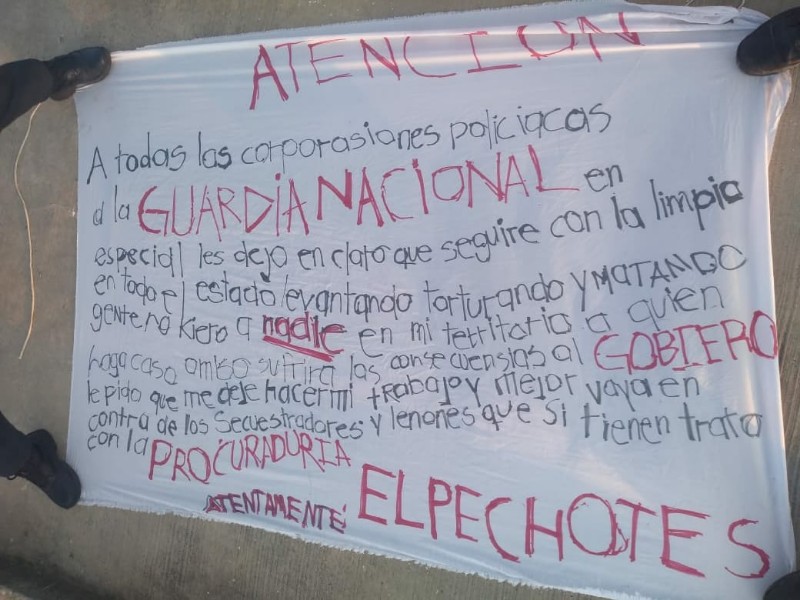 ATENCION
A todas las corporasiones policiacas
d la GUARDIA NACIONAL en
especial les dejo en claro que seguire con la limpia
en todo el estado levantando torturando y MATANDO
gente no kiero a nadie en mi territorio a quien
haga caso omiso sufrira las consecuensias al GOBIERO
le pido que me deje hacer mi trabajo y mejor vaya en
contra de los secuestradores y lenones que si tienen trato
con la PROCURADURIA
ATENTAMENTE: EL PECHOTES